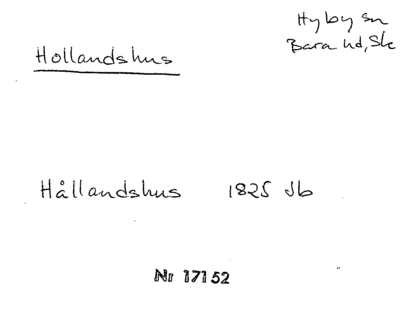 Hyby sn
Bara hd, Sk
Hollandshus
Hållandshus 1825 Jb
Nr 17152